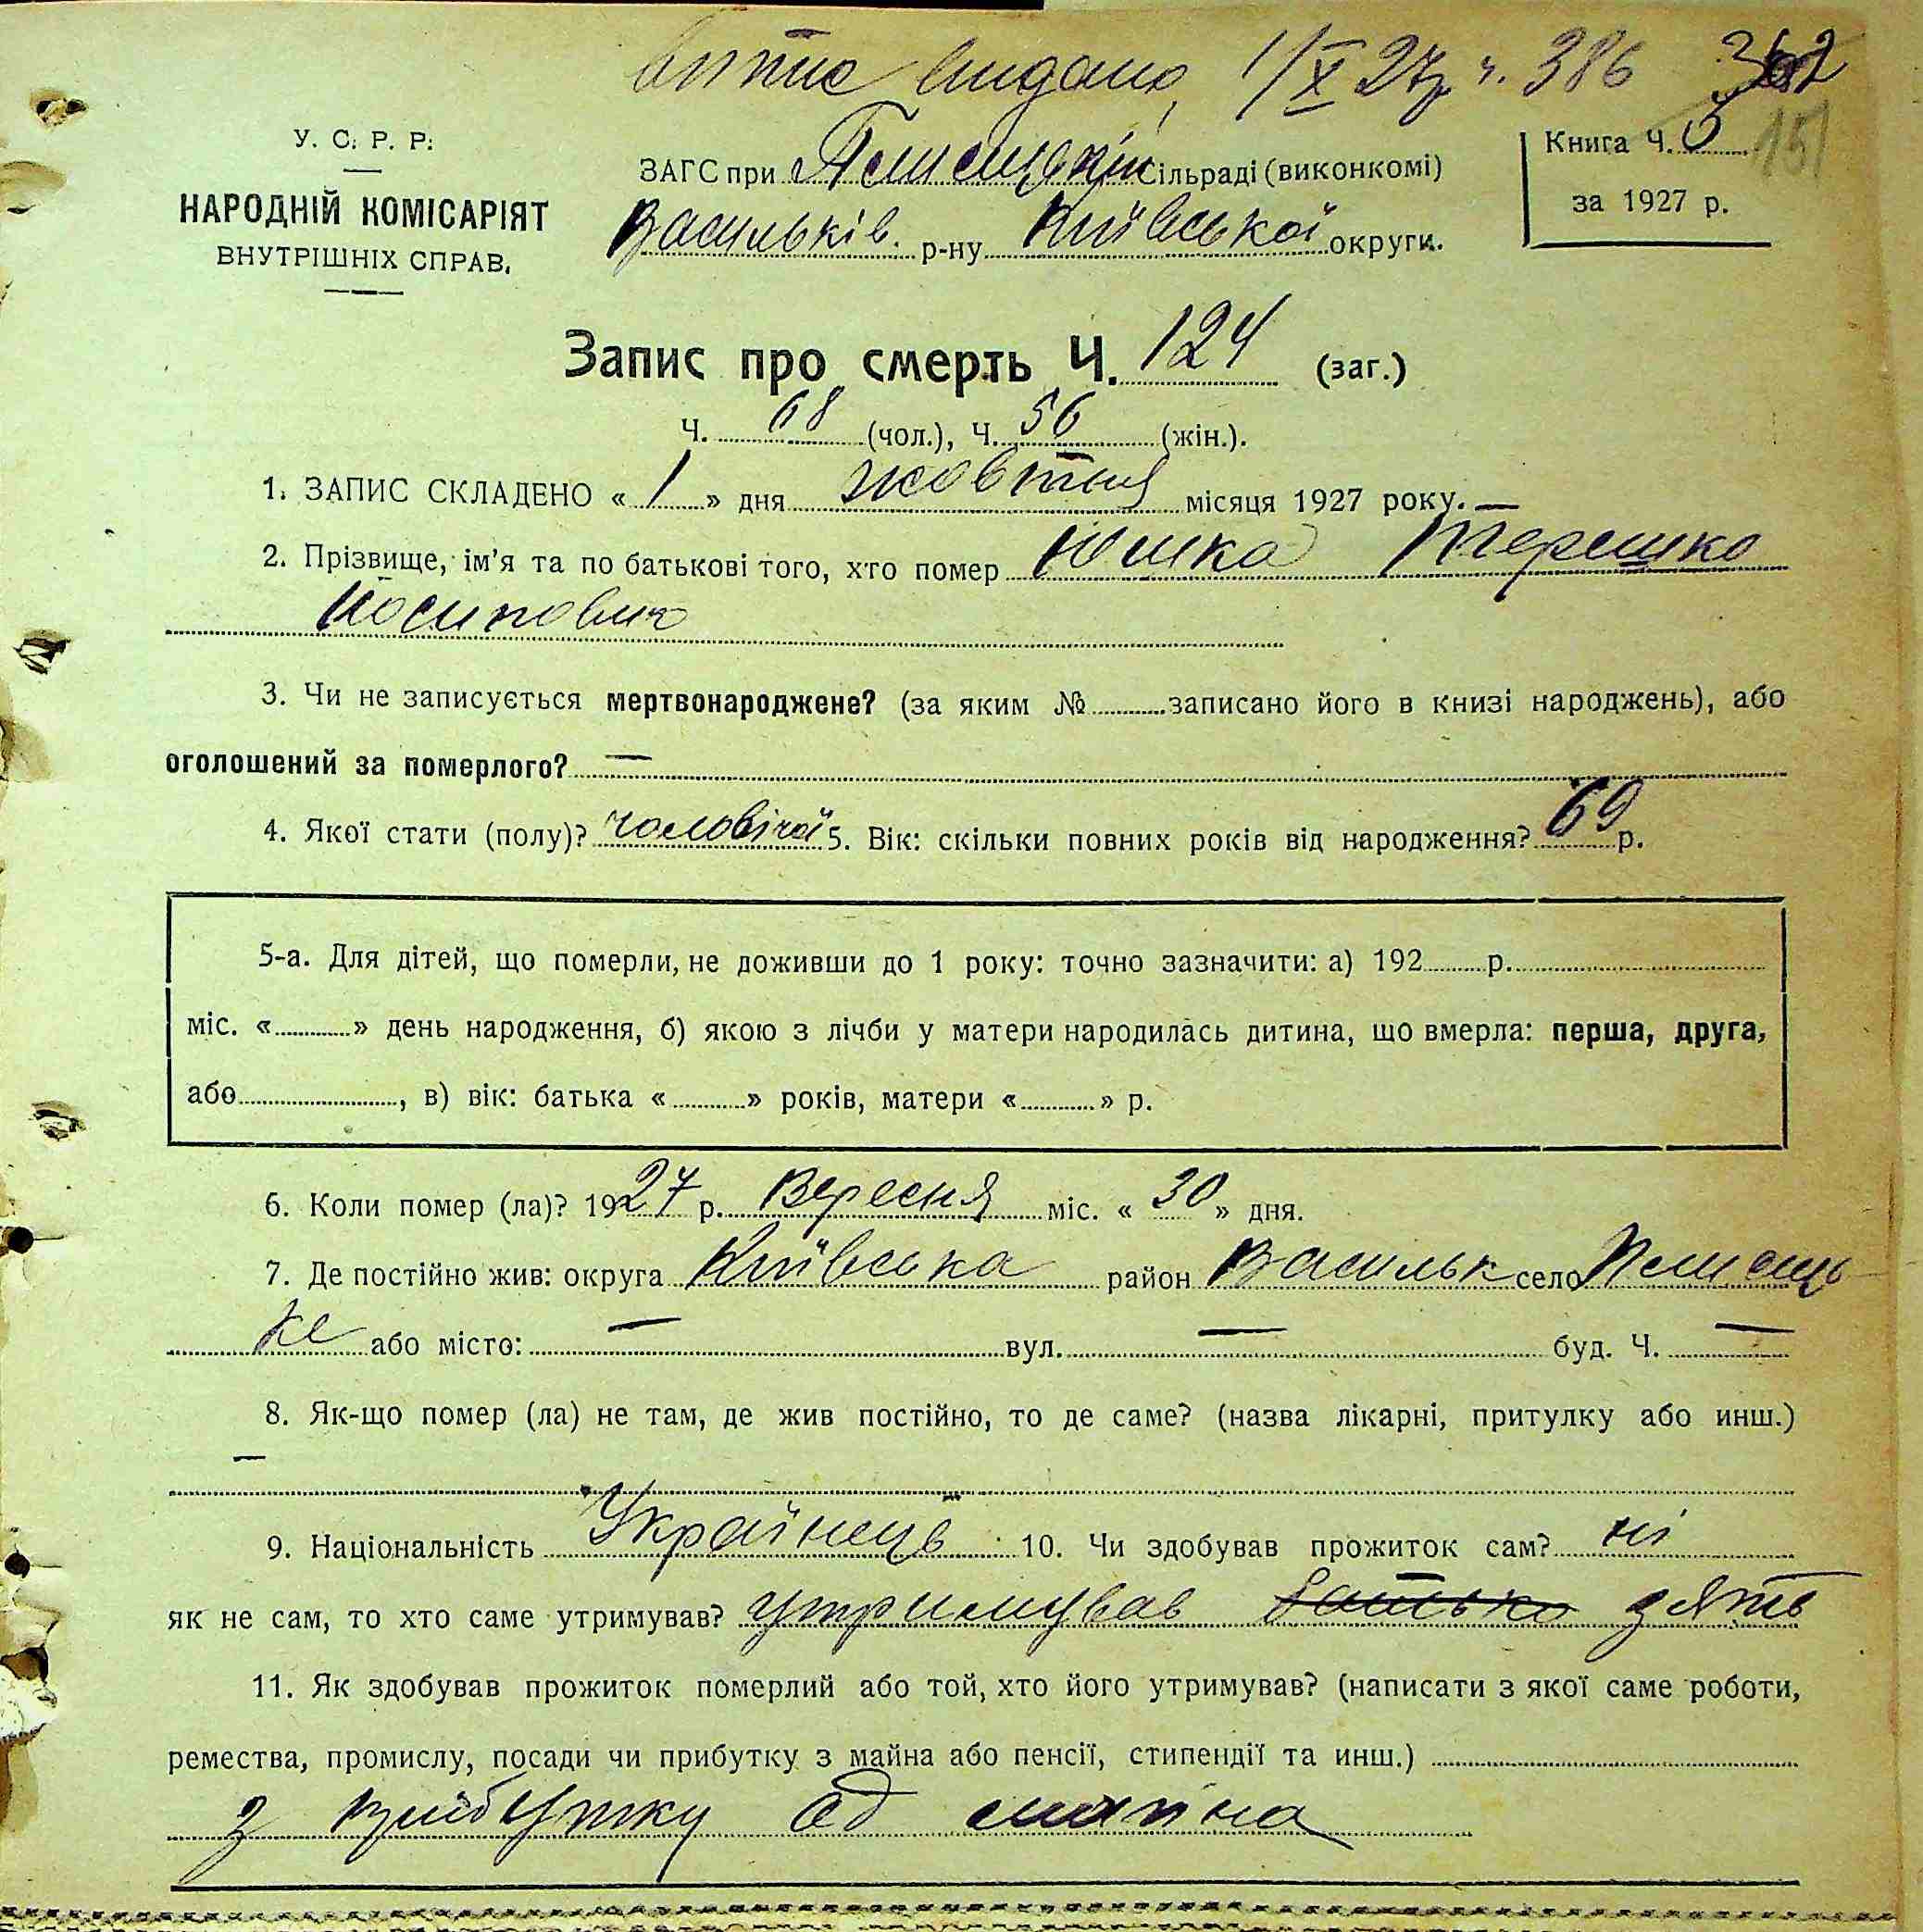 витяг видано, 1/X 27р ч. 386 362
У. С. Р. Р.
НАРОДНІЙ КОМІСАРІЯТ
ВНУТРІШНІХ СПРАВ.
ЗАГС при Плисецькій Сільраді (виконкомі)
Васильків. р-ну Київської округи.
Книга Ч. 5 151
за 1927 р.
Запис про смерть Ч. 124 (заг.)
Ч. 68 (чол.), Ч. 56 (жін.).
1. ЗАПИС СКЛАДЕНО « 1 » дня жовтня місяця 1927 року. —
2. Прізвище, ім'я та по батькові того, хто помер Юшка Терешко
Йосипович
3. Чи не записується мертвонароджене? (за яким № записано його в книзі народжень), або
оголошений за померлого? —
4. Якої стати (полу)? чоловічої 5. Вік: скільки повних років від народження? 69 р.
5-а. Для дітей, що померли, не доживши до 1 року: точно зазначити: а) 192 р.
міс. « » день народження, б) якою з лічби у матери народилась дитина, що вмерла: перша, друга,
або , в) вік: батька « » років, матери « » р.
6. Коли помер (ла)? 1927 р. Вересня міс. « 30 » дня.
7. Де постійно жив: округа Київська район Васильк село Плисець
ке або місто: — вул. — буд. Ч. —
8. Як-що помер (ла) не там, де жив постійно, то де саме? (назва лікарні, притулку або инш.)
—
9. Національність Українець 10. Чи здобував прожиток сам? ні
як не сам, то хто саме утримував? утримував батько зять
11. Як здобував прожиток померлий або той, хто його утримував? (написати з якої саме роботи,
ремества, промислу, посади чи прибутку з майна або пенсії, стипендії та инш.)
з прибутку од майна